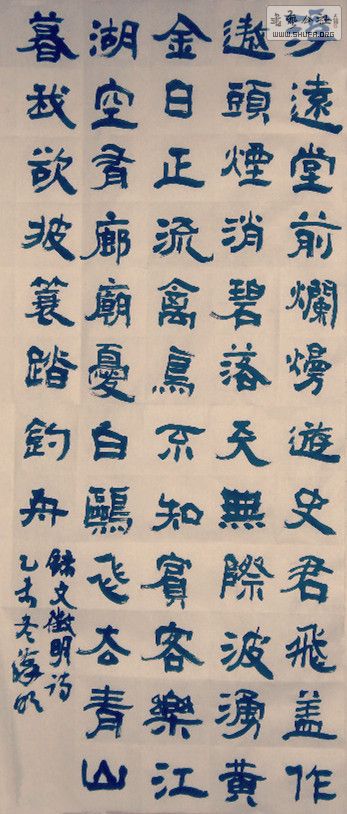 浮遠堂前爛熳遊史君飛盖作
遨頭煙消碧落天無際波湧黄
金日正流禽鳥不知賓客樂江
湖空有廊廟憂白鷗飞去青山
暮我欲披蓑踏釣舟
錄文徵明詩
乙未冬
WWW.SHUFA.ORG